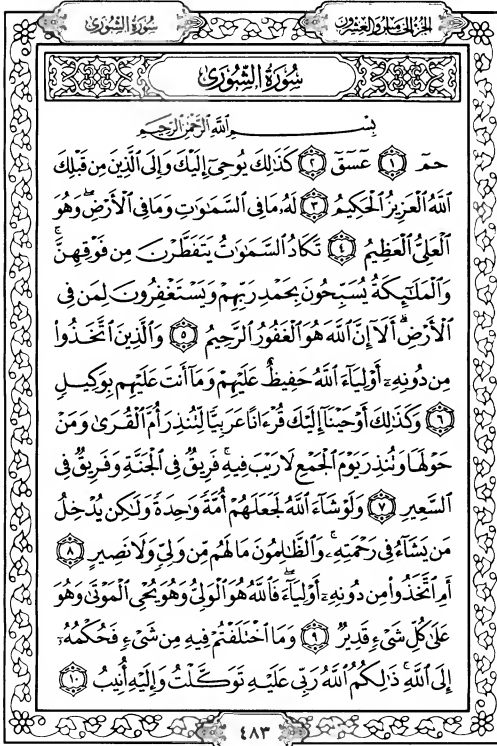 الجزء الخامس والعشرون
سورة الشورى
سُورَةُ الشُّورَىٰ
بِسْمِ اللَّهِ الرَّحْمَٰنِ الرَّحِيمِ
حمٓ ١ عٓسٓقٓ ٢ كَذَٰلِكَ يُوحِيٓ إِلَيْكَ وَإِلَى الَّذِينَ مِن قَبْلِكَ
اللَّهُ الْعَزِيزُ الْحَكِيمُ ٣ لَهُۥ مَا فِي السَّمَٰوَٰتِ وَمَا فِي الْأَرْضِۖ وَهُوَ
الْعَلِيُّ الْعَظِيمُ ٤ تَكَادُ السَّمَٰوَٰتُ يَتَفَطَّرْنَ مِن فَوْقِهِنَّۚ
وَالْمَلَٰٓئِكَةُ يُسَبِّحُونَ بِحَمْدِ رَبِّهِمْ وَيَسْتَغْفِرُونَ لِمَن فِي
الْأَرْضِۗ أَلَآ إِنَّ اللَّهَ هُوَ الْغَفُورُ الرَّحِيمُ ٥ وَالَّذِينَ اتَّخَذُوا۟
مِن دُونِهِۦٓ أَوْلِيَآءَ اللَّهُ حَفِيظٌ عَلَيْهِمْ وَمَآ أَنتَ عَلَيْهِم بِوَكِيلٍ
٦ وَكَذَٰلِكَ أَوْحَيْنَآ إِلَيْكَ قُرْءَانًا عَرَبِيًّا لِّتُنذِرَ أُمَّ الْقُرَىٰ وَمَنْ
حَوْلَهَا وَتُنذِرَ يَوْمَ الْجَمْعِ لَا رَيْبَ فِيهِۚ فَرِيقٌ فِي الْجَنَّةِ وَفَرِيقٌ فِي
السَّعِيرِ ٧ وَلَوْ شَآءَ اللَّهُ لَجَعَلَهُمْ أُمَّةً وَٰحِدَةً وَلَٰكِن يُدْخِلُ
مَن يَشَآءُ فِي رَحْمَتِهِۦۚ وَالظَّٰلِمُونَ مَا لَهُم مِّن وَلِيٍّ وَلَا نَصِيرٍ ٨
أَمِ اتَّخَذُوا۟ مِن دُونِهِۦٓ أَوْلِيَآءَۖ فَاللَّهُ هُوَ الْوَلِيُّ وَهُوَ يُحْيِ الْمَوْتَىٰ وَهُوَ
عَلَىٰ كُلِّ شَيْءٍ قَدِيرٌ ٩ وَمَا اخْتَلَفْتُمْ فِيهِ مِن شَيْءٍ فَحُكْمُهُۥٓ
إِلَى اللَّهِۚ ذَٰلِكُمُ اللَّهُ رَبِّي عَلَيْهِ تَوَكَّلْتُ وَإِلَيْهِ أُنِيبُ ١٠
٤٨٣